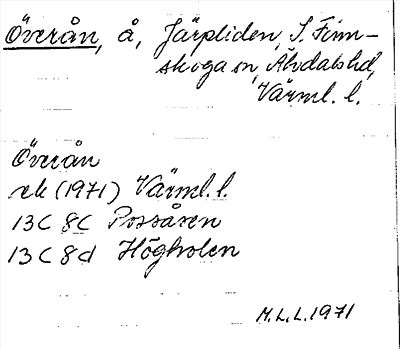 Överån, å, Järpliden, S. Finn-
skoga sn, Älvdals hd,
Värml. l.
Överån
ek (1971) Värml. l.
13C 8C Possåsen
13C 8d Högholen
M.L.L. 1971